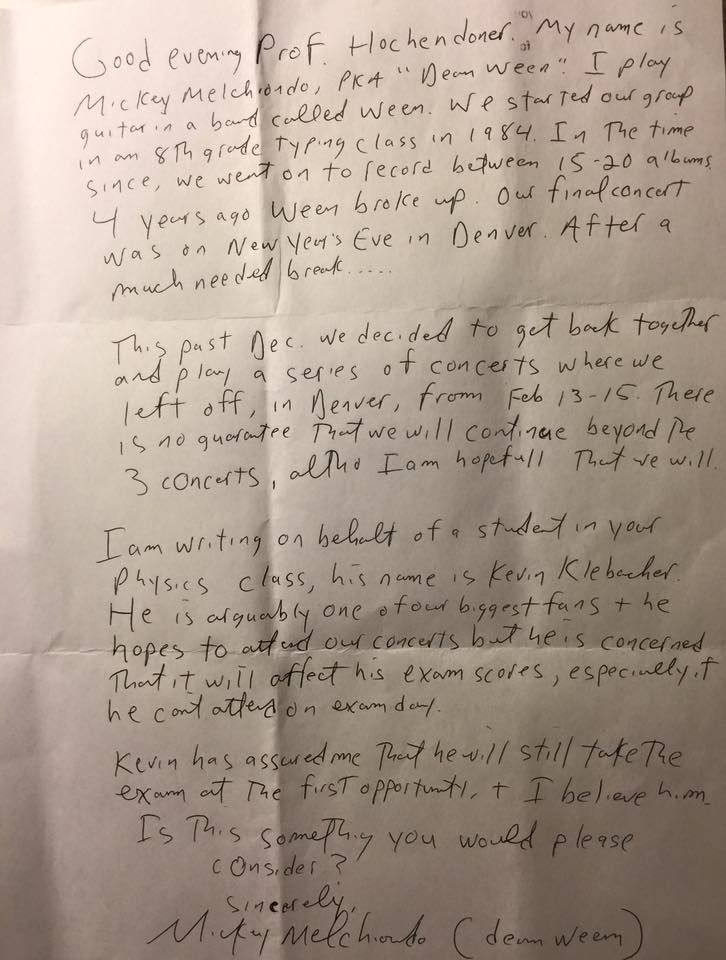 Good evening Prof. Hochendoner. My name is
Mickey Melchiondo, PKA "Dean Ween". I play
guitar in a band called Ween. We started our group
in an 8th grade typing class in 1984. In The time
since, we went on to record between 15-20 albums.
4 years ago Ween broke up. Our final concert
was on New Year's Eve in Denver. After a
much needed break.....
This past Dec. we decided to get back together
and play a series of concerts where we
left off, in Denver, from Feb 13-15. There
is no guarantee That we will continue beyond The
3 concerts, altho I am hopefull That we will.
I am writing on behalf of a student in your
Physics class, his name is Kevin Klebacher.
He is arguably one of our biggest fans + he
hopes to attend our concerts but he is concerned
That it will affect his exam scores, especially if
he cant attend on exam day.
Kevin has assured me That he will still take The
exam at The first opportunity, + I believe him.
Is This something you would please
consider?
Sincerely,
Mickey Melchiondo (dean ween)